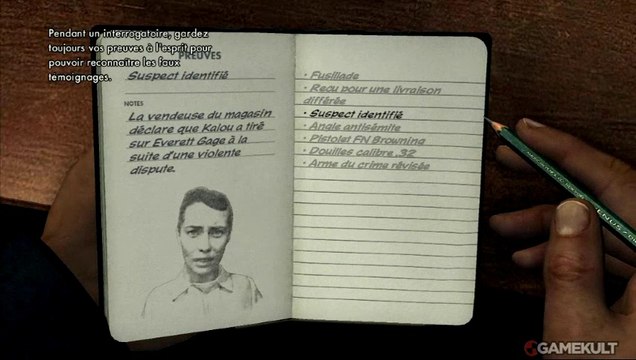 Pendant un interrogatoire, gardez
toujours vos preuves à l'esprit pour
pouvoir reconnaître les faux
temoignages.
PREUVES
Suspect identifié
NOTES
La vendeuse du magasin
déclare que Kalou a tiré
sur Everett Gage à la
suite d'une violente
dispute.
· Fusillade
· Reçu pour une livraison
différée
· Suspect identifié
· Angle antisémite
· Pistolet FN Browning
· Douilles calibre .32
· Arme du crime révisée
GAMEKULT